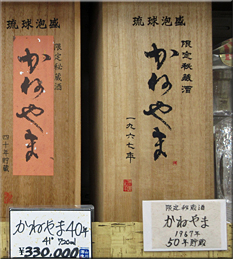 琉球泡盛
限定秘蔵酒
かねやま
四十年貯蔵
琉球泡盛
限定秘蔵酒
かねやま
一九六七年
かねやま40年
41° 720ml
¥330,000
限定秘蔵酒
かねやま
1967年
50年貯蔵